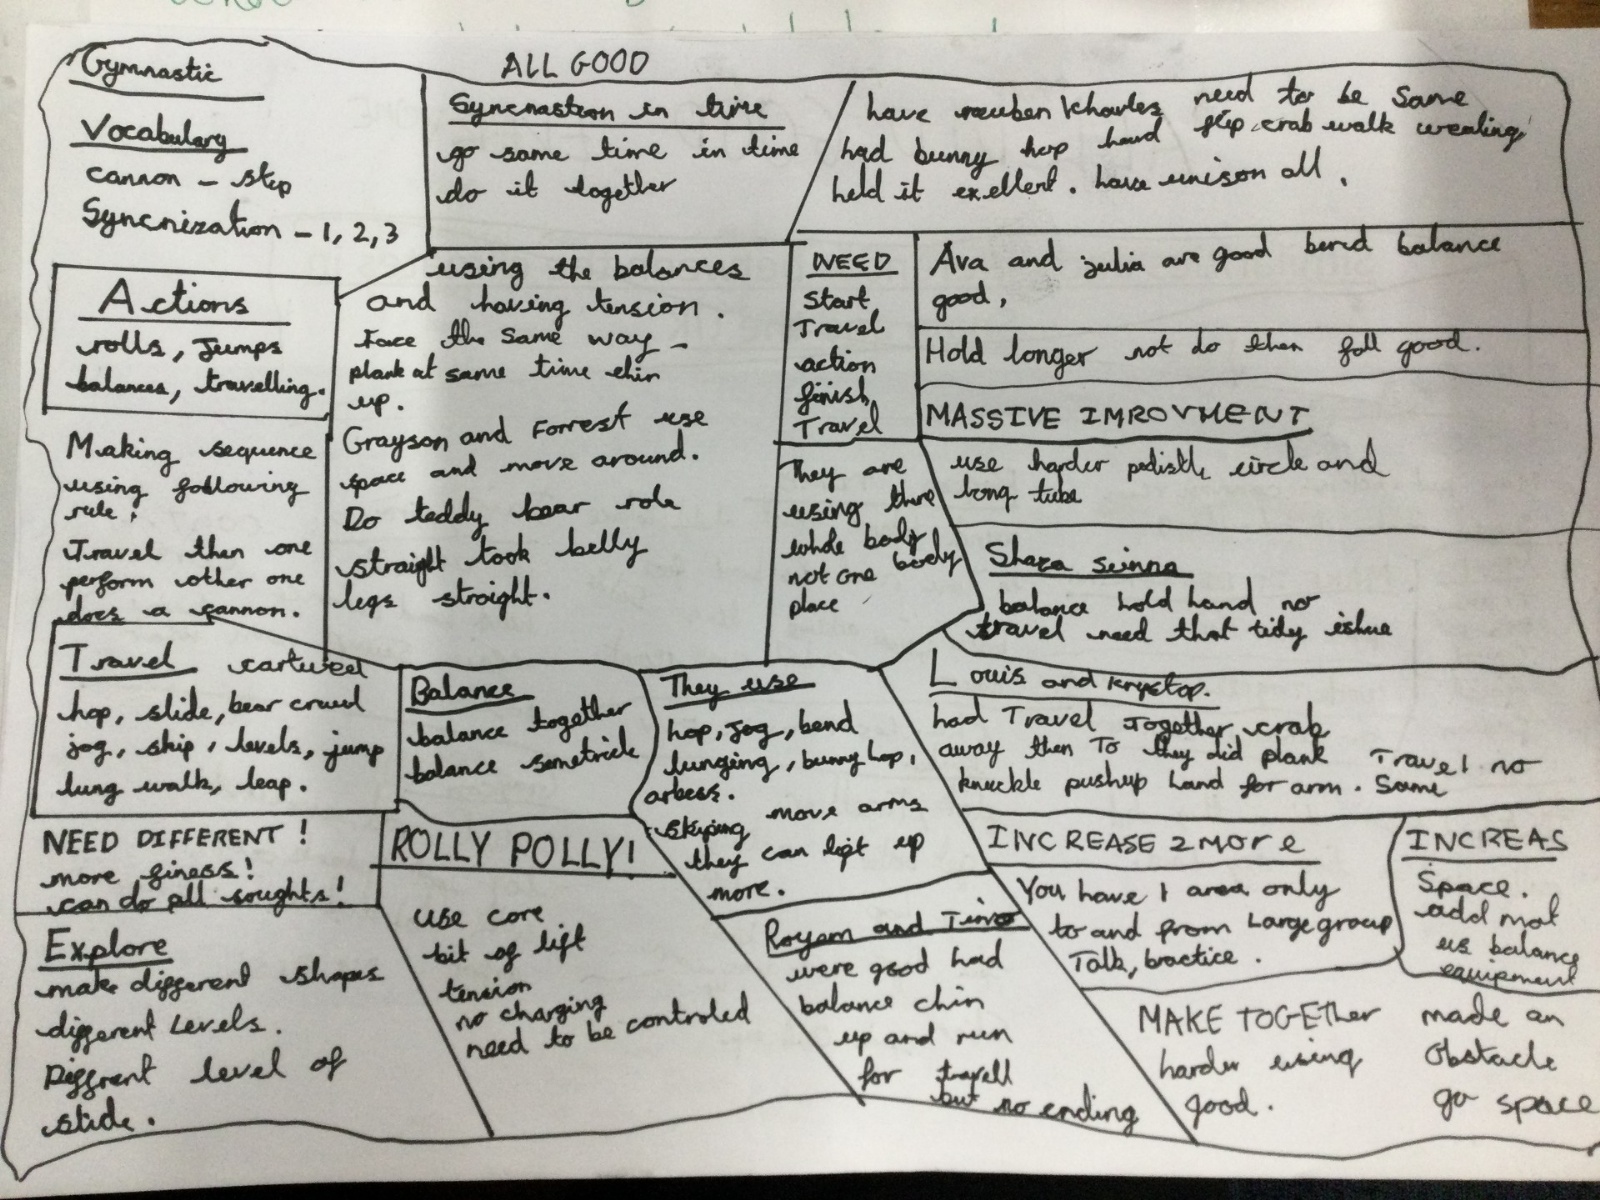 ALL GOOD
Gymnastic
Vocabulary
cannon - step
Syncnization - 1, 2, 3
Syncnastion in time
go same time in time
do it together
have reuben Kharles need to be Same
had bunny hop hand flip crab walk
held it exellent. have unison all.
Actions
rolls, Jumps
balances, travelling.
using the balances
and having tension.
Face the Same way -
plank at same time chin
up.
Grayson and Forrest use
space and move around.
Do teddy bear role
straight took belly
legs straight.
NEED
Start
Travel
action
finish
Travel
Ava and julia are good bered balance
good,
Hold longer not do then fall good.
MASSIVE IMROVMENT
use harder pedistle circle and
long tube
Making sequence
using following
rule:
Travel then one
perform other one
does a cannon.
They are
using there
whole body
not one body
place
Shaza seinna
balance hold hand no
travel need that tidy ishue
Travel cartweel
hop, slide, bear crawl
jog, skip, levels, jump
lung walk, leap.
Balance
balance together
balance semetrick
They use
hop, jog, bend
lunging, bunny hop,
arbess.
skiping move arms
they can lift up
more.
Louis and Krystop.
had Travel Together crab
away then To they did plank Travel no
knuckle pushup hand for arm. Same
NEED DIFFERENT!
more finess!
can do all soughts!
ROLLY POLLY!
use core
bit of lift
tension
no charging
need to be controled
INCREASE 2 more
You have 1 area only
to and from Large group
Talk, practice.
INCREAS
Space.
add mat
us balance
equipment
Explore
make different shapes
different Levels.
Diffrent level of
slide.
Royam and Timo
were good had
balance chin
up and run
for travell
but no ending
MAKE TOGETher
harder using
good.
made an
Obstacle
go space